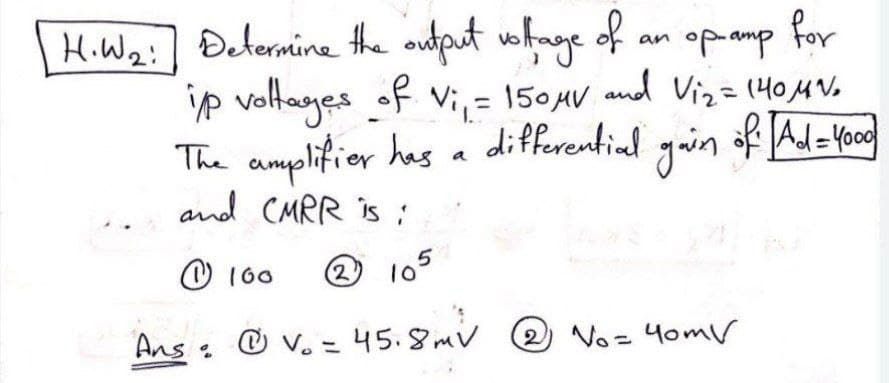 H.W2: Determine the output voltage of an op-amp for
i/p voltages of Vi1 = 150 μV and Vi2 = 140 μV.
The amplifier has a differential gain of: Ad = 4000
and CMRR is :
① 100 ② 10⁵
Ans : ① Vo = 45.8mV ② Vo = 40mV